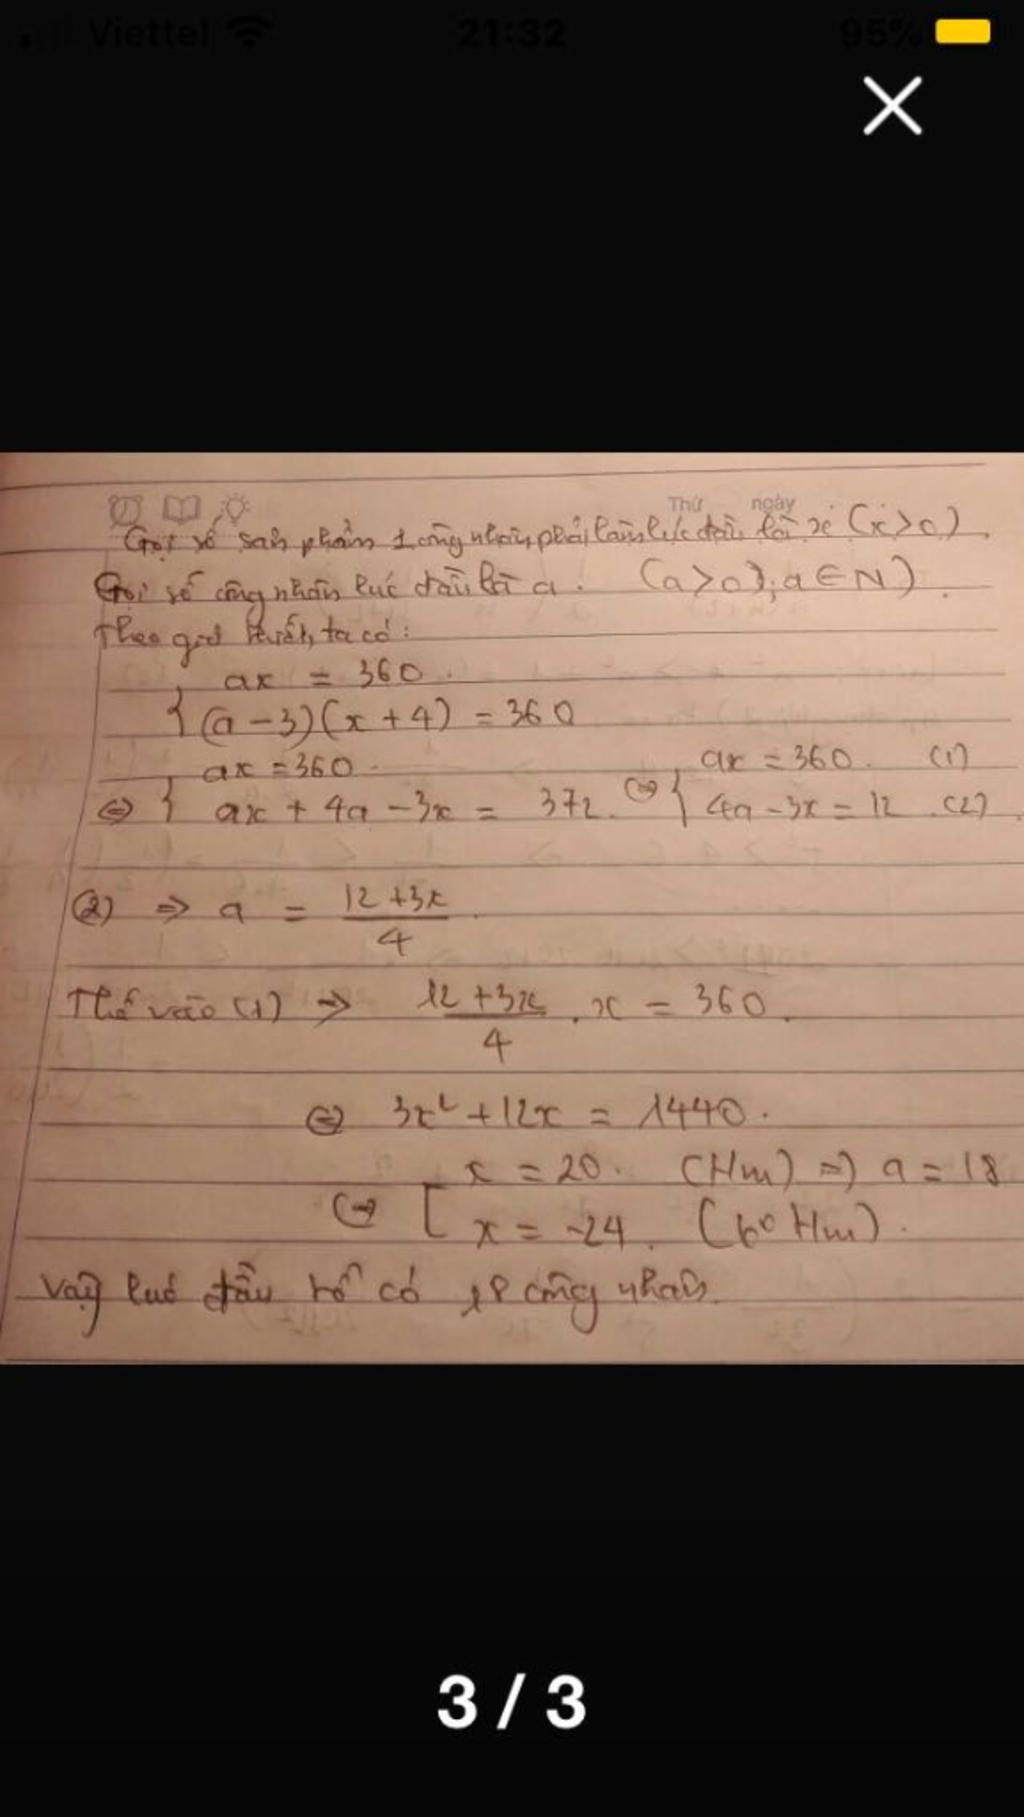 Viettel 21:32 95%
Thứ ngày
Gọi số sản phẩm 1 công nhân phải làm lúc đầu là x (x>0).
Gọi số công nhân lúc đầu là a. (a>0; a∈N).
Theo giả thiết, ta có:
ax = 360.
{ (a-3)(x+4) = 360
ax = 360. ax = 360. (1)
⇔ { ax + 4a - 3x = 372. ⇔ { 4a - 3x = 12. (2)
(2) ⇒ a = 12+3x / 4.
Thế vào (1) ⇒ 12+3x / 4 . x = 360.
⇔ 3x² + 12x = 1440.
x = 20. (tm) ⇒ a = 18
⇔ [ x = -24. (ko tm).
Vậy lúc đầu tổ có 18 công nhân.
3 / 3